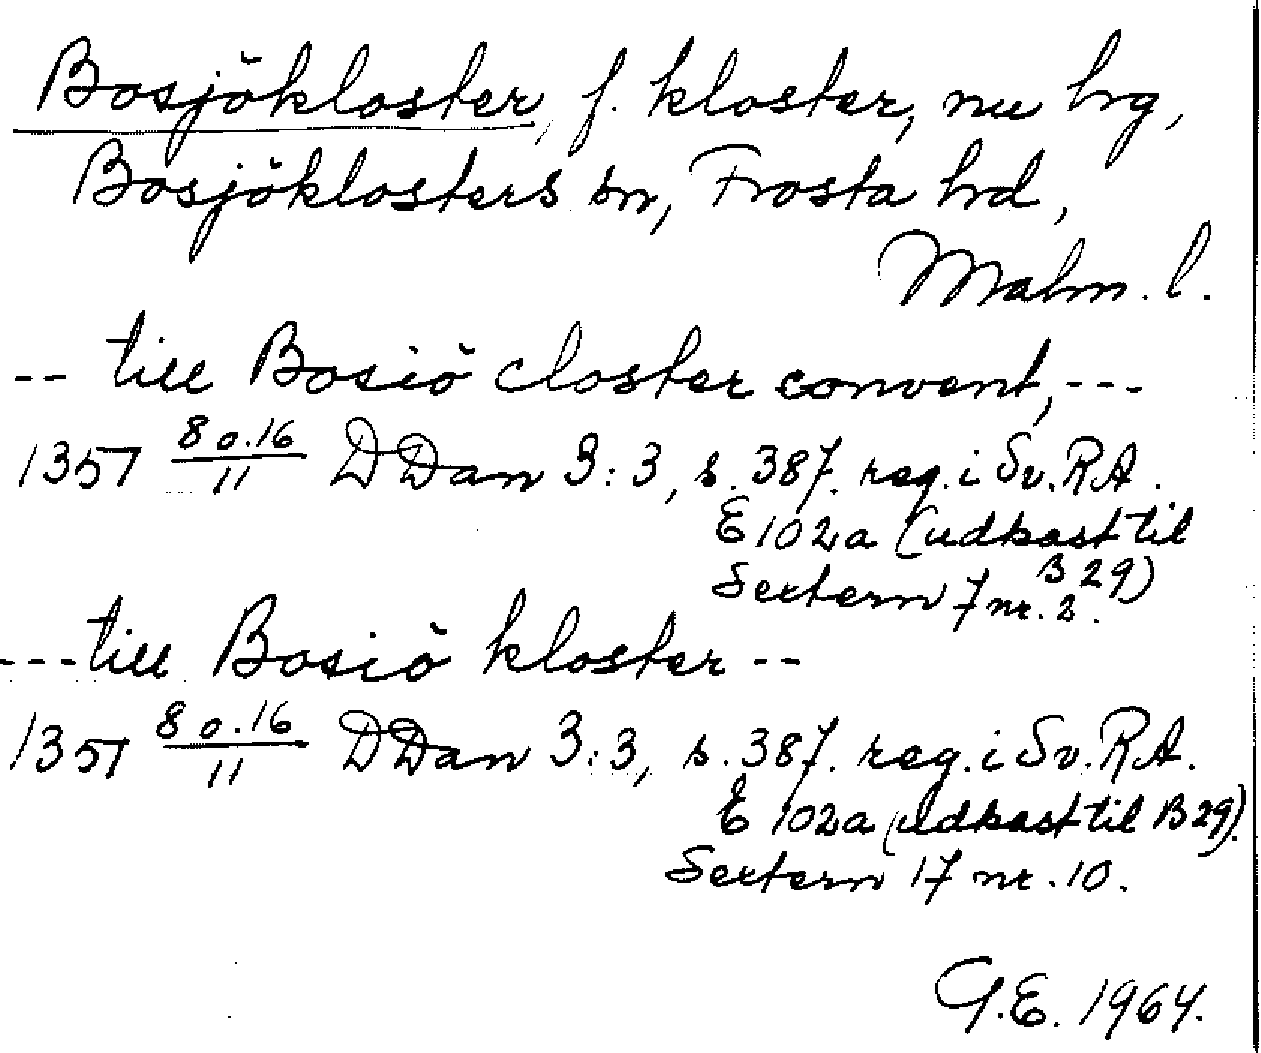 Bosjökloster, f. kloster, nu hrg,
Bosjöklosters sn, Frosta hrd,
Malm. l.
-- till Bosiö closter convent, ---
1357 8 o. 16/11 DDan 3:3, s. 387. reg. i Sv. RA.
E 102a (udkast til
B 29)
Sextern 7 nr. 2.
--- till Bosiö kloster --
1357 8 o. 16/11 DDan 3:3, s. 387. reg. i Sv. RA.
E 102a (udkast til B 29)
Sextern 17 nr. 10.
G.E. 1964.